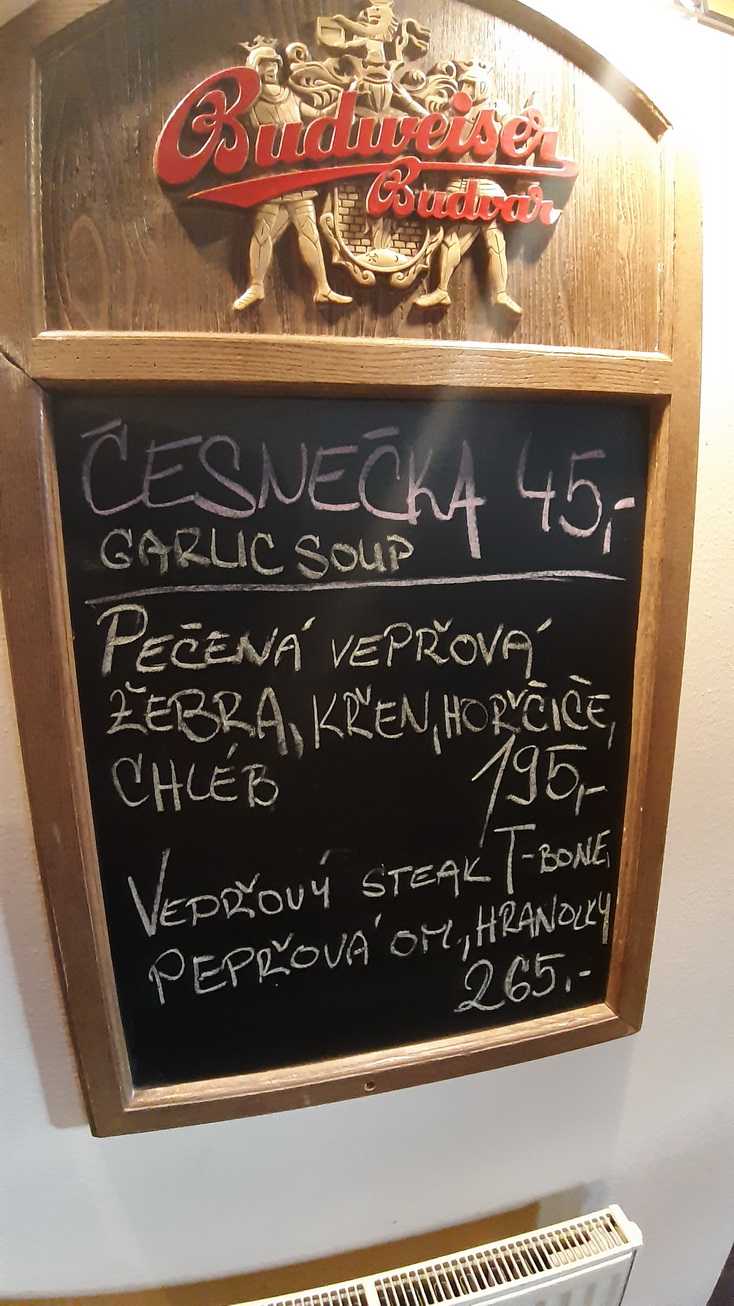 Budweiser
Budvar
ČESNEČKA 45,-
GARLIC SOUP
PEČENÁ VEPŘOVÁ
ŽEBRA, KŘEN, HOŘČIČE,
CHLÉB 195,-
VEPŘOVÝ STEAK T-BONE,
PEPŘOVÁ OM., HRANOLKY
265,-